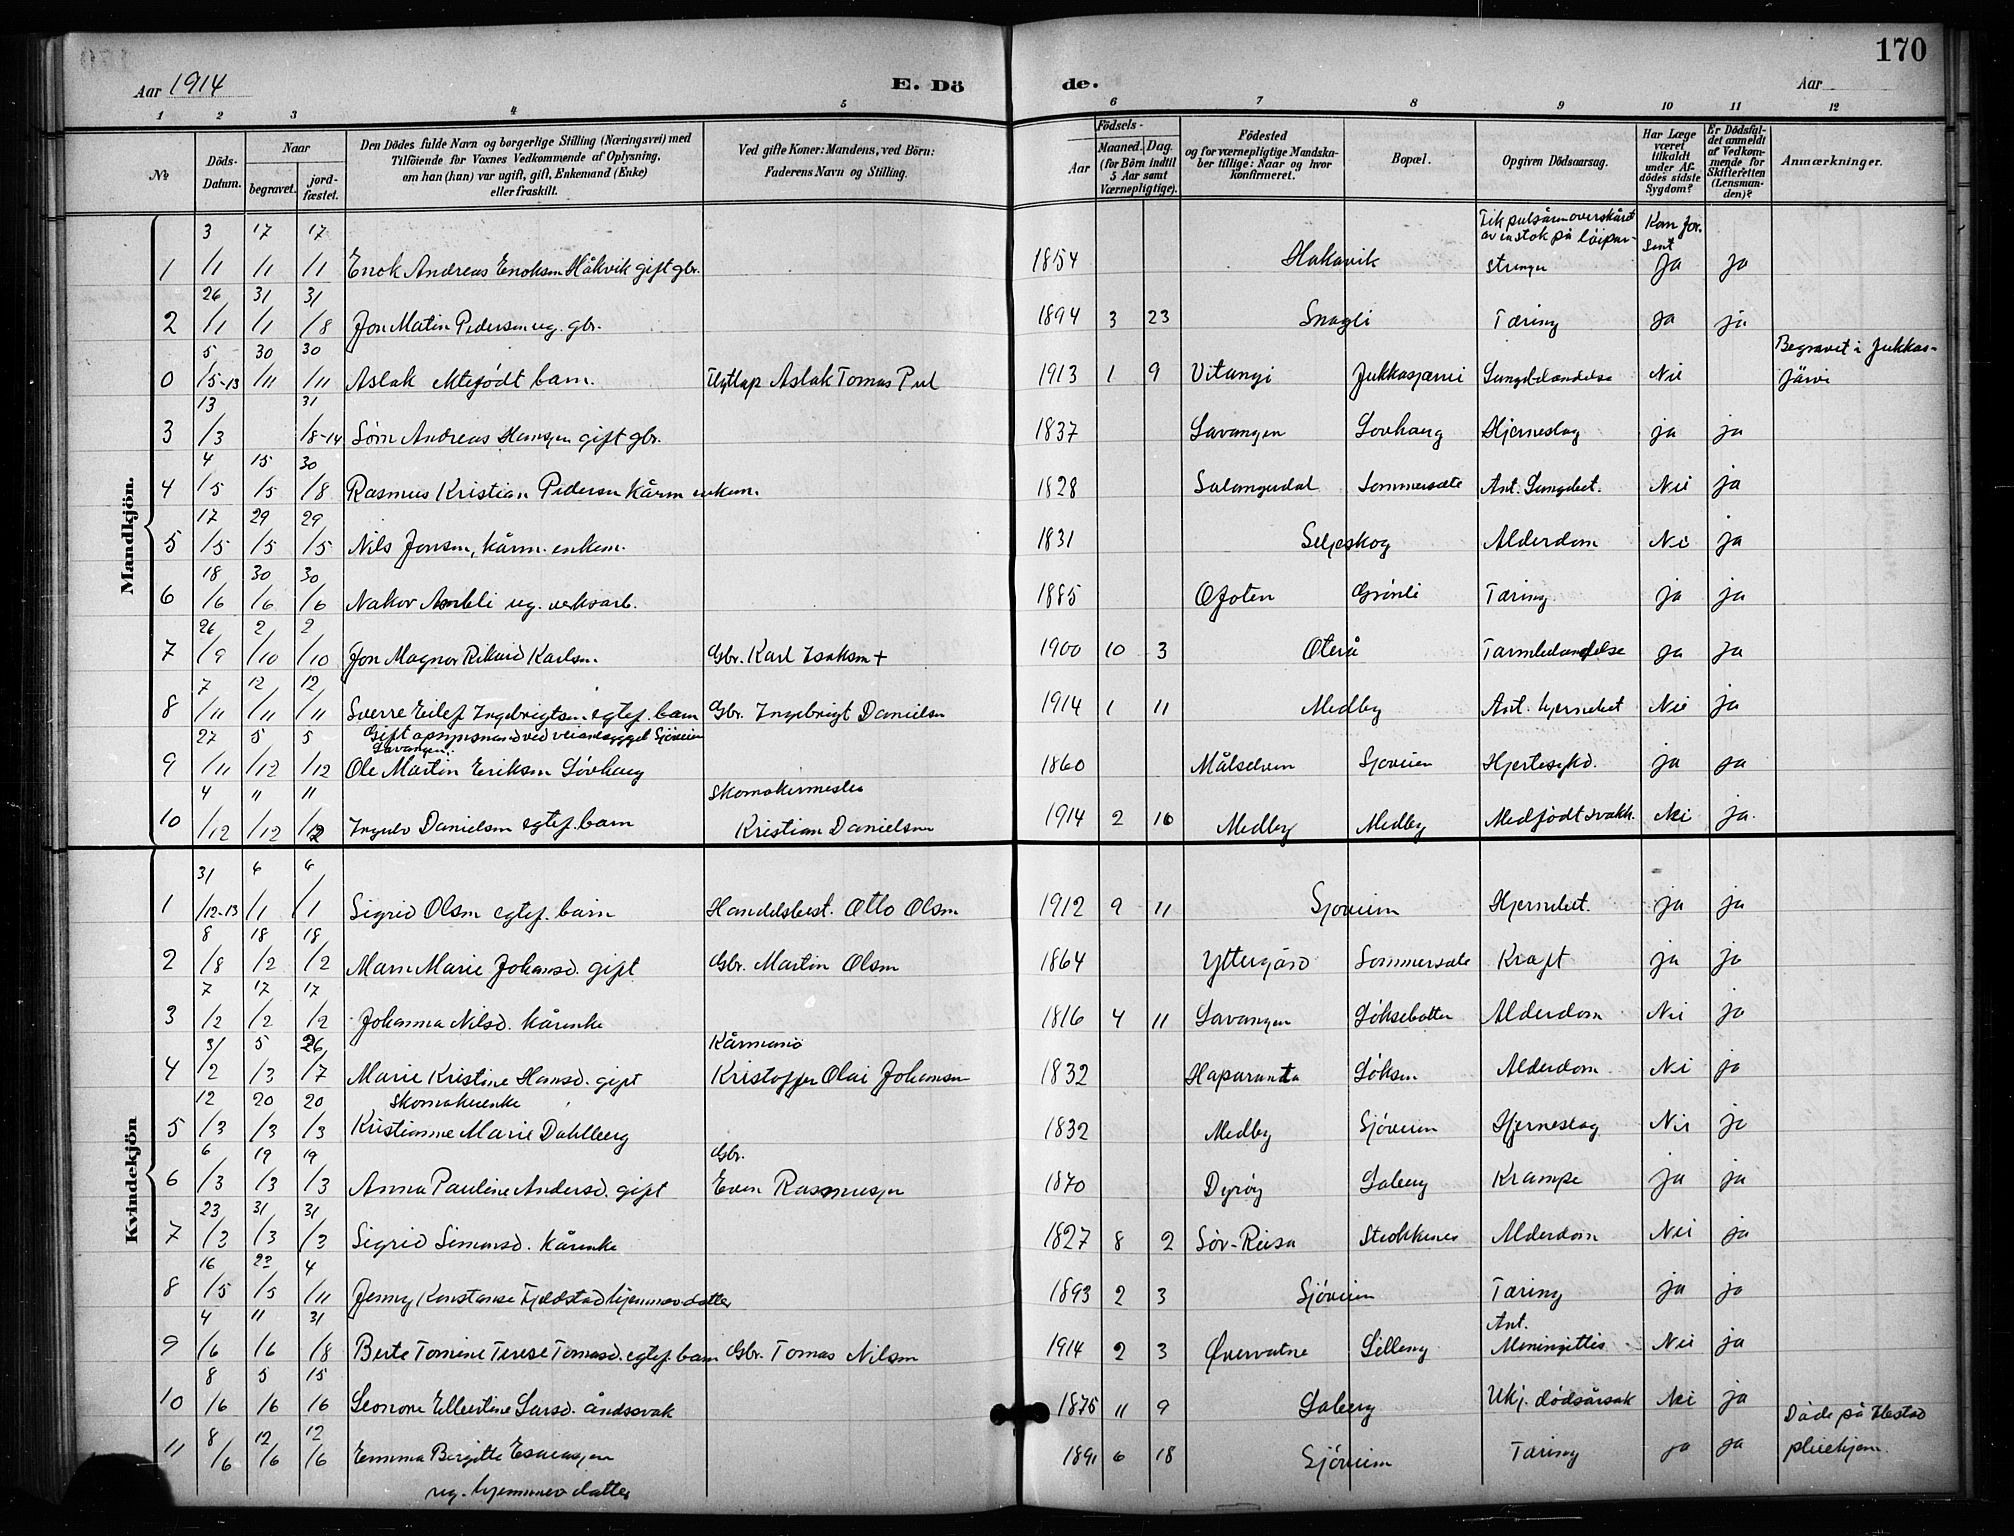 170
Aar 1914 E. Dö de. Aar
1 2 3 4 5 6 7 8 9 10 11 12
№ Döds-Datum. Naar begravet. jordfæstet. Den Dödes fulde Navn og borgerlige Stilling (Næringsvei) med Tilföiende for Voxnes Vedkommende af Oplysning, om han (hun) var ugift, gift, Enkemand (Enke) eller fraskilt. Ved gifte Koner: Mandens, ved Börn: Faderens Navn og Stilling. Födsels- Aar Maaned. Dag. (for Börn indtil 5 Aar samt Værnepligtige). Födested og for værnepligtige Mandskaber tillige: Naar og hvor Konfirmeret. Bopæl. Opgiven Dödsaarsag. Har Læge været tilkaldt under Afdödes sidste Sygdom? Er Dödsfaldet anmeldt af Vedkommende for Skifteretten (Lensmanden)? Anmærkninger.
Mandkjön.
1 3/1 17/1 17/1 Enok Andreas Enoksen Håkvik gift gbr. 1854 Hakavik Fik pulsåren overskåret av en stok på løipestrenger Kom for sent ja ja
2 26/1 31/1 31/8 Jon Matin Pedersen ug. gbr. 1894 3 23 Snagli Tæring ja ja
0 5/5-13 30/11 30/11 Aslak ektefødt barn. Flytlap Aslak Tomas Pul 1913 1 9 Vitangi Jukkasjærvi Lungebetændelse Nei Begravet i Jukkasjärvi
3 13/3 31/8-14 Sørn Andreas Hansen gift gbr. 1837 Lavangen Lovhaug Hjerneslag ja ja
4 4/5 15/5 30/8 Rasmus Kristian Pedersen kårm enkem. 1828 Salangsdal Sommersæte Ant. Lungebet. Nei ja
5 17/5 29/5 29/5 Nils Jonsen, kårm. enkem. 1831 Seljeskog Alderdom Nei ja
6 18/6 30/6 30/6 Nakor ug. verksarb. 1885 Ofoten Grønli Tæring ja ja
7 26/9 2/10 2/10 Jon Magnor Rikard Karlsen. Gbr. Karl Isaksen + 1900 10 3 Oterå Tarmbetændelse ja ja
8 7/11 12/11 12/11 Sverre Eilef Ingebrigtsen egtef. barn Gbr. Ingebrigt Danielsen 1914 1 11 Medby Ant. hjernebet Nei ja
9 27/11 5/12 5/12 Gift opsynsmand ved veianlægget Sjøveien Lavangen. Ole Martin Eriksen Løvhaug 1860 Målselven Sjøveien Hjertesykd. ja ja
10 4/12 11/12 11/12 Ingulv Danielsen egtef. barn Skomakermester Kristian Danielsen 1914 2 16 Medby Medby Medfødt svakh. Nei ja.
Kvindekjön
1 31/12-13 6/1 6/1 Sigrid Olsen egtef. barn Handelsbest. Otto Olsen 1912 9 11 Sjøveien Hjernebet. ja ja
2 8/8 18/2 18/2 Maren Marie Johansd. gift Gbr. Martin Olsen 1864 Yttergård Sommersæte Kræft ja ja
3 7/2 17/2 17/2 Johanna Nilsd. kårenke 1816 4 11 Lavangen Løksebotten Alderdom Nei ja
4 31/2 5/3 26/7 Marie Kristine Hansd. gift Kårmand Kristoffer Olai Johansen 1832 Haparanda Løksen Alderdom Nei ja
5 12/3 20/3 20/3 Skomakerenke Kristianne Marie Dahlberg 1832 Medby Sjøveien Hjerneslag Nei ja
6 6/3 19/3 19/3 Anna Pauline Andersd. gift Gbr. Even Rasmussen 1870 Dyrøy Laberg Krampe ja ja
7 23/3 31/3 31/3 Sigrid Simonsd. kårenke 1827 8 2 Sør-Reisa Strokkenes Alderdom Nei ja
8 16/5 22/5 4/11 Jenny Konstanse Fjeldstad hjemmev. datter 1893 2 3 Sjøveien Tæring ja ja
9 4/6 11/6 31/8 Berte Tomine Terese Tomasd. egtef. barn Gbr. Tomas Nilsen 1914 2 3 Øvervatne Lilleng Ant. Meningittis Nei ja
10 8/6 5/6 15/6 Leonore Ellertine Larsd. åndssvak 1875 11 9 Laberg Ukj. dødsårsak Nei ja
11 8/6 12/6 12/6 Emma Birgitte Esaiassen ug. hjemmev datter 1891 6 18 Sjøveien Tæring ja ja Døde på Ilestad pleiehjem.